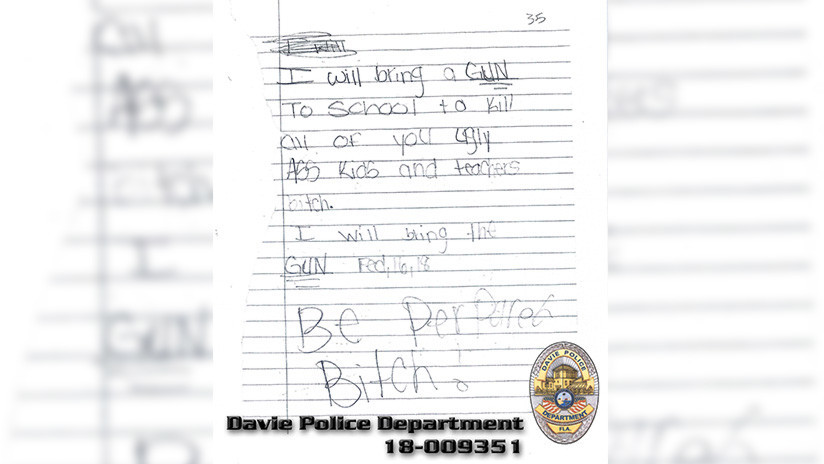 35
I will
I will bring a GUN
To School to kill
all of you ugly
ASS kids and teachers
bitch.
I will bring the
GUN Fed,16,18
Be PerPared
Bitch!
DAVIE POLICE
DEPARTMENT
FLA.
Davie Police Department
18-009351